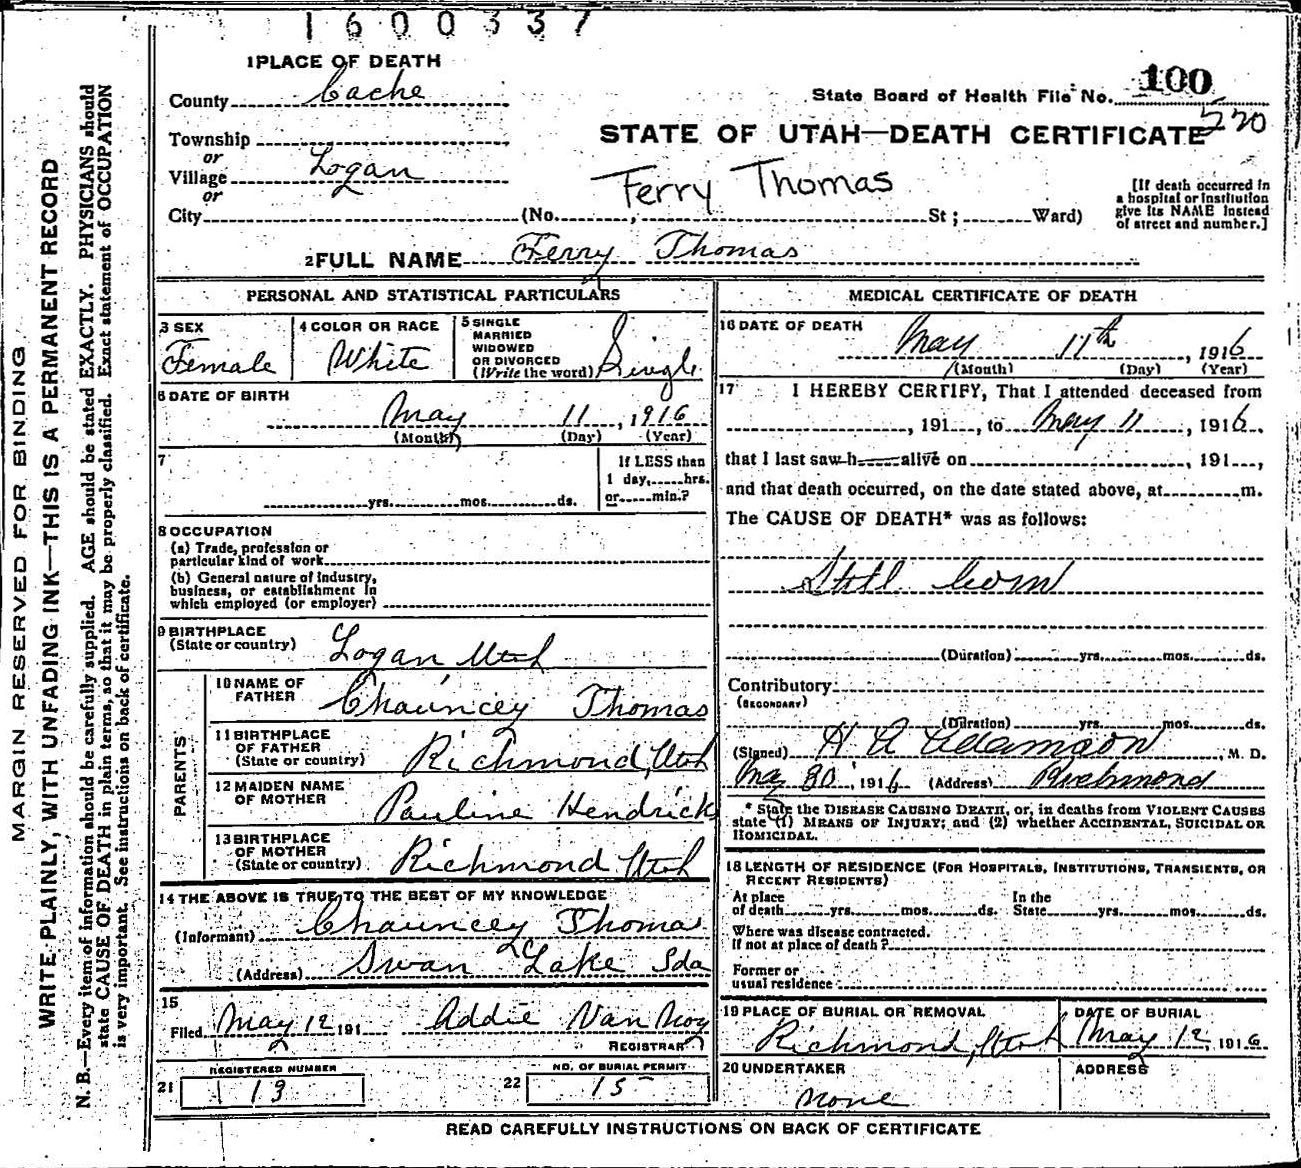 1600337
1 PLACE OF DEATH
County Cache
State Board of Health File No. 100
520
Township
or
Village Logan
or
City (No. , St ; Ward)
STATE OF UTAH—DEATH CERTIFICATE
Ferry Thomas
[If death occurred in
a hospital or institution
give its NAME instead
of street and number.]
2 FULL NAME Ferry Thomas
PERSONAL AND STATISTICAL PARTICULARS
3 SEX
Female
4 COLOR OR RACE
White
5 SINGLE
MARRIED
WIDOWED
OR DIVORCED
(Write the word) Single
6 DATE OF BIRTH
May 11, 1916
(Month) (Day) (Year)
7
yrs. mos. ds.
If LESS than
1 day, hrs.
or min.?
8 OCCUPATION
(a) Trade, profession or
particular kind of work
(b) General nature of industry,
business, or establishment in
which employed (or employer)
9 BIRTHPLACE
(State or country) Logan Utah
PARENTS
10 NAME OF
FATHER Chauncey Thomas
11 BIRTHPLACE
OF FATHER
(State or country) Richmond, Utah
12 MAIDEN NAME
OF MOTHER Pauline Hendrick
13 BIRTHPLACE
OF MOTHER
(State or country) Richmond Utah
14 THE ABOVE IS TRUE TO THE BEST OF MY KNOWLEDGE
(Informant) Chauncey Thomas
(Address) Swan Lake Ida
15
Filed May 12 191 Addie Van Noy
REGISTRAR
21 REGISTERED NUMBER
13
22 NO. OF BURIAL PERMIT
15
MEDICAL CERTIFICATE OF DEATH
16 DATE OF DEATH
May 11th, 1916
(Month) (Day) (Year)
17 I HEREBY CERTIFY, That I attended deceased from
, 191 , to May 11, 1916,
that I last saw h alive on , 191 ,
and that death occurred, on the date stated above, at m.
The CAUSE OF DEATH* was as follows:
Still born
(Duration) yrs. mos. ds.
Contributory
(SECONDARY)
(Duration) yrs. mos. ds.
(Signed) H A Adamson, M. D.
May 30, 1916 (Address) Richmond
* State the DISEASE CAUSING DEATH, or, in deaths from VIOLENT CAUSES
state (1) MEANS OF INJURY; and (2) whether ACCIDENTAL, SUICIDAL OR
HOMICIDAL.
18 LENGTH OF RESIDENCE (FOR HOSPITALS, INSTITUTIONS, TRANSIENTS, OR
RECENT RESIDENTS)
At place In the
of death yrs. mos. ds. State yrs. mos. ds.
Where was disease contracted.
if not at place of death ?
Former or
usual residence
19 PLACE OF BURIAL OR REMOVAL
Richmond, Utah
DATE OF BURIAL
May 12, 1916
20 UNDERTAKER
none
ADDRESS
READ CAREFULLY INSTRUCTIONS ON BACK OF CERTIFICATE
MARGIN RESERVED FOR BINDING
WRITE PLAINLY, WITH UNFADING INK—THIS IS A PERMANENT RECORD
N. B.—Every item of information should be carefully supplied. AGE should be stated EXACTLY. PHYSICIANS should
state CAUSE OF DEATH in plain terms, so that it may be properly classified. Exact statement of OCCUPATION
is very important. See instructions on back of certificate.